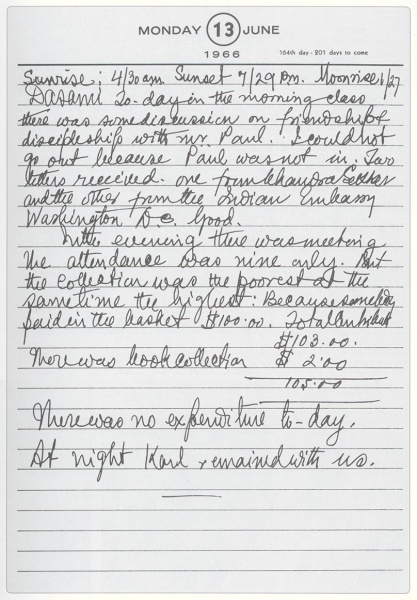 MONDAY 13 JUNE
1966
164th day - 201 days to come
Sunrise; 4/30 am. Sunset 7/29 Pm. Moonrise 1/27
Dasami To-day in the morning class
there was some discussion on friendship &
discipleship with Mr. Paul. I could not
go out because Paul was not in. Two
letters received. One from Chandra Sekhar
and the other from the Indian Embassy
Washington D.C. Good.
In the evening there was meeting
the attendance was nine only. But
the collection was the poorest at the
same time the highest: Because somebody
paid in the basket $100.00. Total
$103.00.
There was book collection $2.00
105.00
There was no expenditure to-day.
At night Karl remained with us.